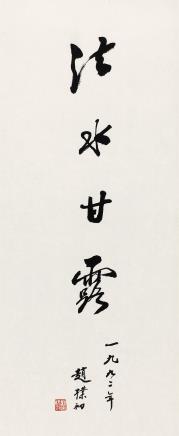 法水甘露
一九九二年
趙樸初